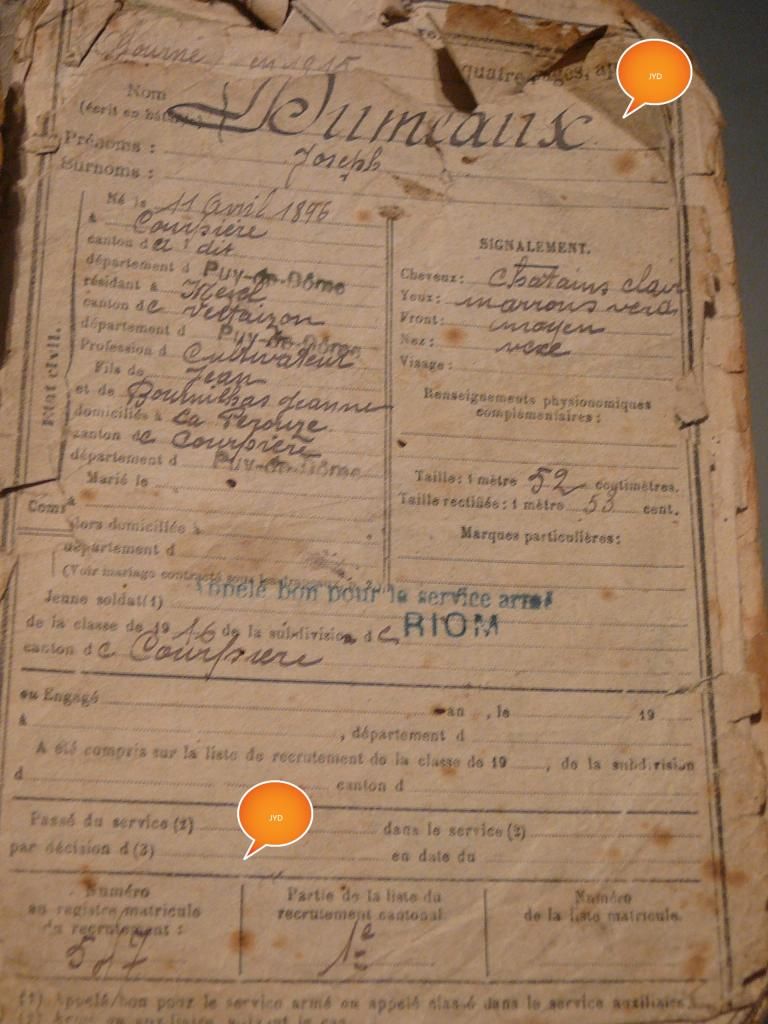 Tourné en 1915
quatre pages, ap
JYD
Nom
(écrit en bâtarde)
Dumeaux
Prénoms : Joseph
Surnoms :
Etat civil.
Né le 11 avril 1896
à Courpière
canton d dit
département d Puy-de-Dôme
résidant à Mezel
canton de Vertaizon
département d Puy-de-Dôme
Profession d Cultivateur
Fils de Jean
et de Jeanne
domiciliés à La Perouze
canton de Courpière
département d Puy-de-Dôme
Marié le
à
lors domiciliée à
département d
(Voir mariage contracté sous les drapeaux, p. 2.)
SIGNALEMENT.
Cheveux: chatains clair
Yeux: marrons verd
Front: moyen
Nez: vexe
Visage:
Renseignements physionomiques
complémentaires:
Taille: 1 mètre 52 centimètres.
Taille rectifiée: 1 mètre 53 cent.
Marques particulières:
Appelé bon pour le service armé
Jeune soldat(1)
de la classe de 1916 de la subdivision de RIOM
canton de Courpière
ou Engagé an , le 19
à , département d
A été compris sur la liste de recrutement de la classe de 19 , de la subdivision
d canton d
JYD
Passé du service (2) dans le service (3)
par décision d (3) en date du
Numéro
au registre matricule
du recrutement :
517
Partie de la liste du
recrutement cantonal.
1e
Numéro
de la liste matricule.
(1) Appelé bon pour le service armé ou appelé classé dans le service auxiliaire.
(2) Armé ou auxiliaire, suivant le cas.